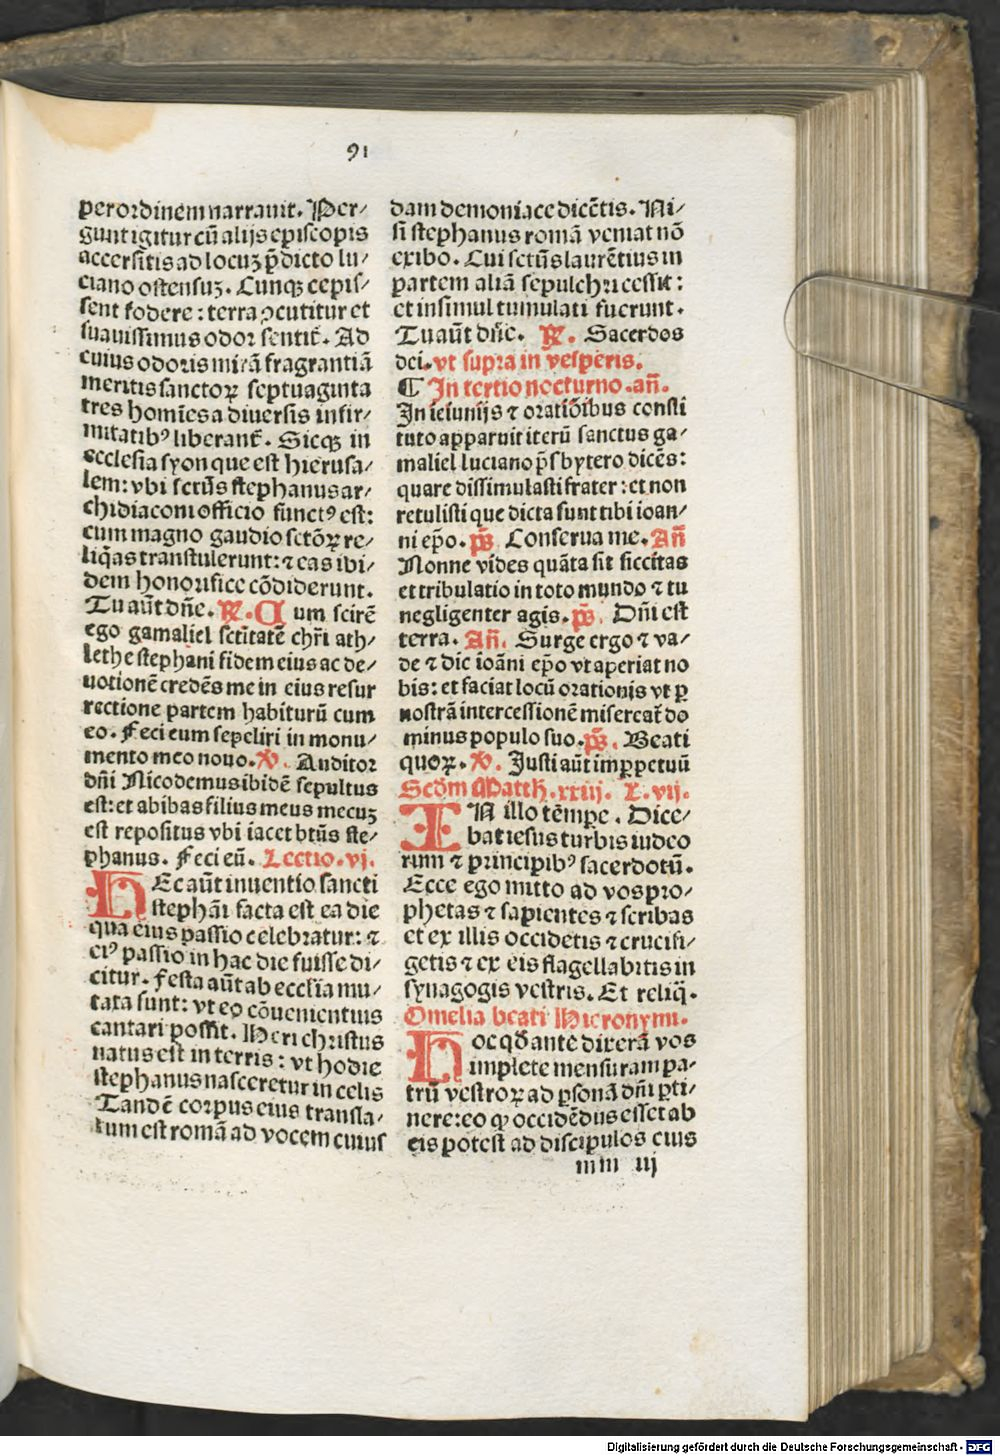 91
per ordinem narrauit. Per⸗
gunt igitur cū alijs episcopis
accersitis ad locuꝫ p̄dicto lu⸗
ciano ostensuꝫ. Cunqꝫ cepis⸗
sent fodere: terra ꝯcutitur et
suauissimus odor sentit᷑. Ad
cuius odoris mirā fragrantiā
meritis sanctoꝝ septuaginta
tres homīes a diuersis infir⸗
mitatibꝰ liberant᷑. Sicqꝫ in
ecclesia syon que est hierusa⸗
lem: vbi sctūs stephanus ar⸗
chidiaconi officio functꝰ est:
cum magno gaudio sctōꝝ re⸗
liq̄as transtulerunt: ⁊ eas ibi⸗
dem honorifice cōdiderunt.
Tu aūt dn̄e. ℟. Cum scirē
ego gamaliel sctītatē chr̄i ath⸗
lethe stephani fidem eius ac de⸗
uotionē credēs me in eius resur
rectione partem habiturū cum
eo. Feci eum sepeliri in monu⸗
mento meo nouo. ℣. Auditor
dn̄i Nicodemus ibidē sepultus
est: et abibas filius meus mecuꝫ
est repositus vbi iacet btūs ste⸗
phanus. Feci eū. Lectio. vj.
HEc aūt inuentio sancti
stephāi facta est ea die
qua eius passio celebratur: ⁊
eiꝰ passio in hac die fuisse di⸗
citur. Festa aūt ab ecclīa mu⸗
tata sunt: vt eo cōuenientius
cantari possit. Heri christus
natus est in terris: vt hodie
stephanus nasceretur in celis
Tandē corpus eius transla⸗
tum est romā ad vocem cuius
dam demoniace dicētis. Ni⸗
si stephanus romā veniat nō
exibo. Cui sctūs laurētius in
partem aliā sepulchri cessit:
et insimul tumulati fuerunt.
Tu aūt dn̄e. ℟. Sacerdos
dei. vt supra in vesperis.
¶ In tertio nocturno. an̄.
In ieiunijs ⁊ oratiōibus consti
tuto apparuit iterū sanctus ga⸗
maliel luciano p̄sbytero dicēs:
quare dissimulasti frater: et non
retulisti que dicta sunt tibi ioan⸗
ni ep̄o. p̄s. Conserua me. An̄
Nonne vides quāta sit siccitas
et tribulatio in toto mundo ⁊ tu
negligenter agis. p̄s. Dn̄i est
terra. An̄. Surge ergo ⁊ va⸗
de ⁊ dic ioāni ep̄o vt aperiat no
bis: et faciat locū orationis vt ꝑ
nostrā intercessionē misereat᷑ do
minus populo suo. p̄s. Beati
quoꝝ. ℣. Justi aūt imꝑpetuū
Scd̄m Matth. xxiij. L. vij.
IN illo tēmpe. Dice⸗
bat iesus turbis iudeo
rum ⁊ principibꝰ sacerdotū.
Ecce ego mitto ad vos pro⸗
phetas ⁊ sapientes ⁊ scribas
et ex illis occidetis ⁊ crucifi⸗
getis ⁊ ex eis flagellabitis in
synagogis vestris. Et reliq̄.
Omelia beati Hieronymi.
Hoc qd̄ ante dixerā vos
implete mensuram pa⸗
trū vestroꝝ ad ꝑsonā dn̄i ꝑti⸗
nere: eo ꝙ occidēdus esset ab
eis potest ad discipulos eius
mm iij
Digitalisierung gefördert durch die Deutsche Forschungsgemeinschaft - DFG